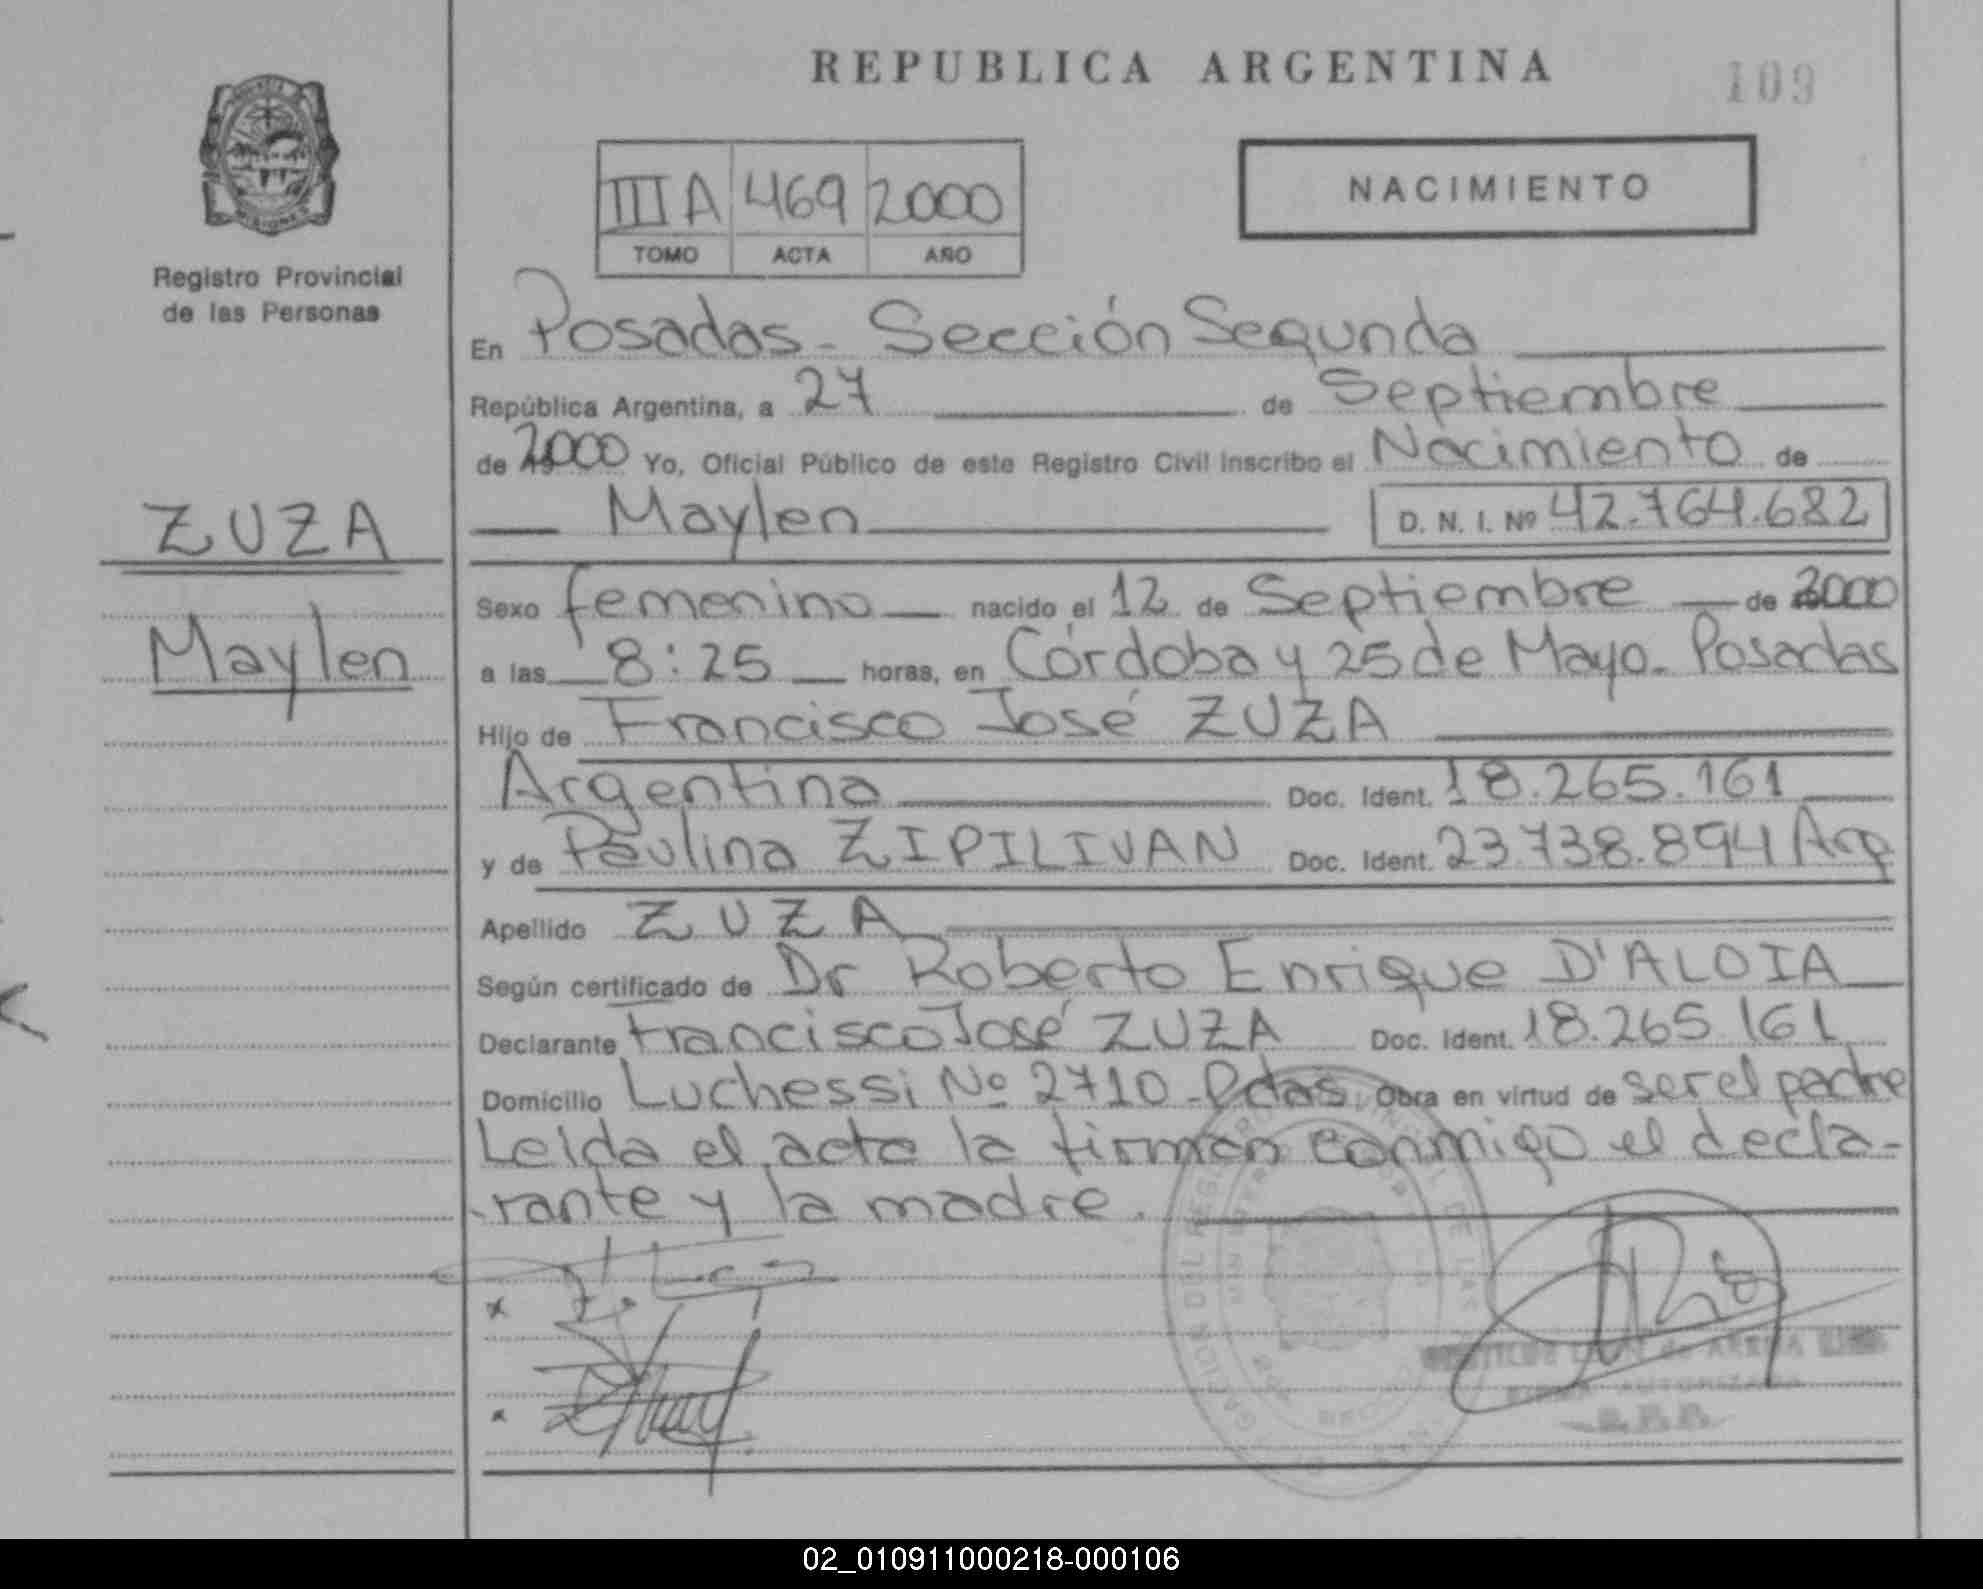 REPUBLICA ARGENTINA
109
NACIMIENTO
III A 469 2000
TOMO ACTA AÑO
MISIONES
Registro Provincial
de las Personas
En Posadas - Sección Segunda
República Argentina, a 27 de Septiembre
de 2000 Yo, Oficial Público de este Registro Civil inscribo el Nacimiento de
Maylen D. N. I. Nº 42.764.682
ZUZA
Maylen
Sexo femenino nacido el 12 de Septiembre de 2000
a las 8:25 horas, en Córdoba y 25 de Mayo - Posadas
Hijo de Francisco José ZUZA
Argentina Doc. Ident. 18.265.161
y de Paulina ZIPILIVAN Doc. Ident. 23.738.894 Arg
Apellido ZUZA
Según certificado de Dr Roberto Enrique D'ALOIA
Declarante Francisco José ZUZA Doc. Ident. 18.265.161
Domicilio Luchessi Nº 2710 - Pdas Obra en virtud de ser el padre
Leida el acta la firman conmigo el decla-
-rante y la madre.
02_010911000218-000106